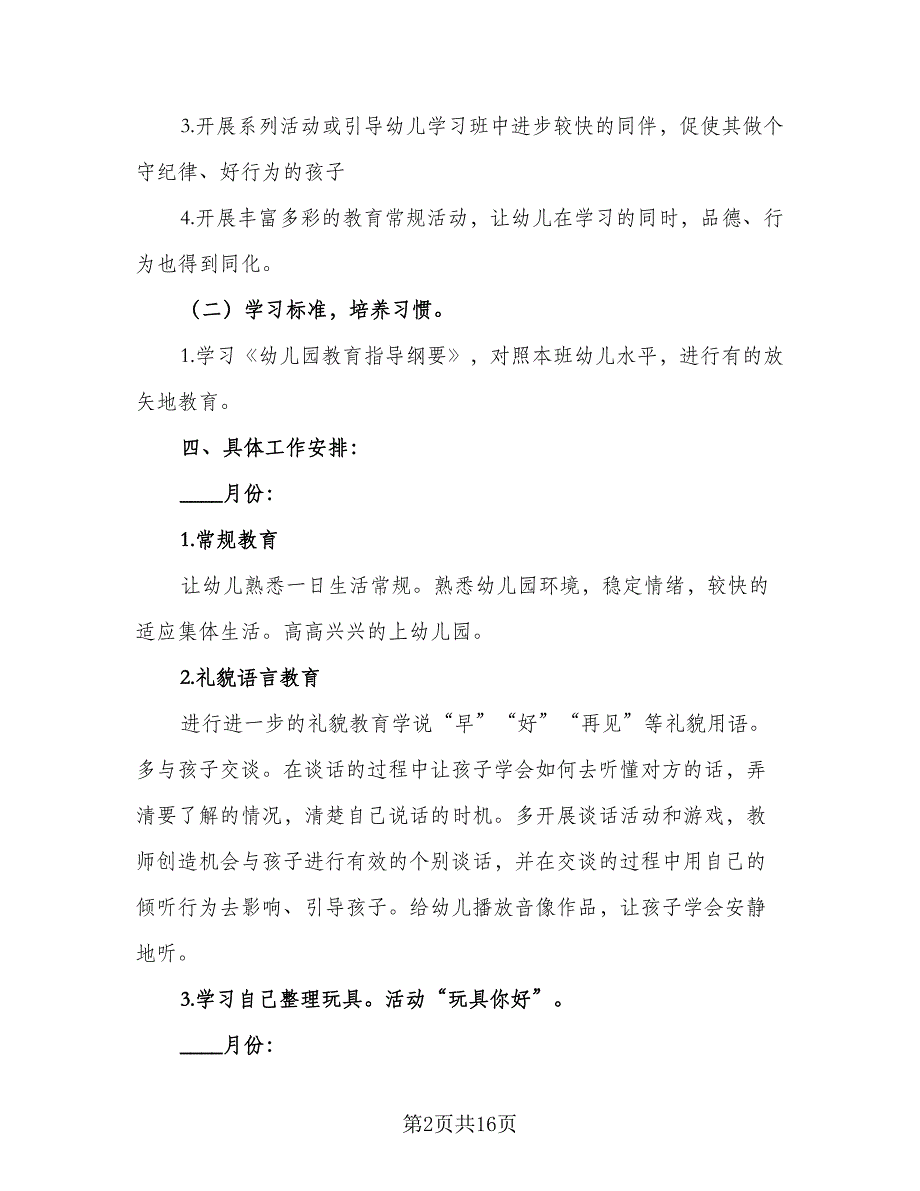 3.开展系列活动或引导幼儿学习班中进步较快的同伴，促使其做个
守纪律、好行为的孩子
4.开展丰富多彩的教育常规活动，让幼儿在学习的同时，品德、行
为也得到同化。
（二）学习标准，培养习惯。
1.学习《幼儿园教育指导纲要》，对照本班幼儿水平，进行有的放
矢地教育。
四、具体工作安排：
____月份：
1.常规教育
让幼儿熟悉一日生活常规。熟悉幼儿园环境，稳定情绪，较快的
适应集体生活。高高兴兴的上幼儿园。
2.礼貌语言教育
进行进一步的礼貌教育学说“早”“好”“再见”等礼貌用语。
多与孩子交谈。在谈话的过程中让孩子学会如何去听懂对方的话，弄
清要了解的情况，清楚自己说话的时机。多开展谈话活动和游戏，教
师创造机会与孩子进行有效的个别谈话，并在交谈的过程中用自己的
倾听行为去影响、引导孩子。给幼儿播放音像作品，让孩子学会安静
地听。
3.学习自己整理玩具。活动“玩具你好”。
____月份：
第2页共16页